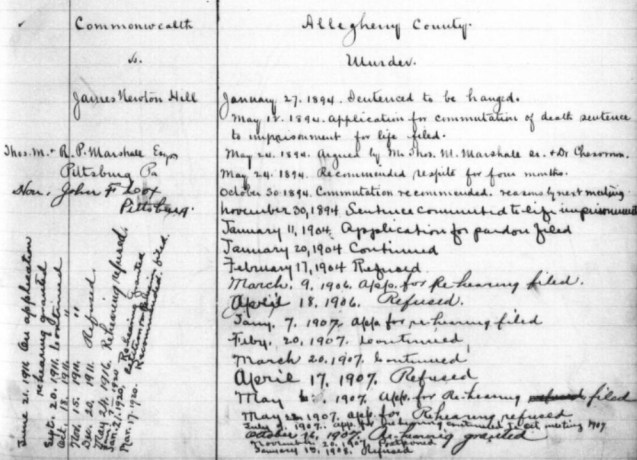 Commonwealth
vs.
James Newton Hill
Thos. M. & R. P. Marshall Esqs
Pittsburg Pa
Hon. John F. Cox
Pittsburg.
Allegheny County.
Murder.
January 27. 1894. Sentenced to be hanged.
May 18. 1894. Application for commutation of death sentence
to imprisonment for life filed.
May 24. 1894. Argued by Mr Thos. M. Marshall
May 24. 1894. Recommended respite for four months.
October 30 1894. Commutation recommended. reasons next meeting
November 30, 1894 Sentence commuted to life imprisonment
January 11, 1904. Application for pardon filed
January 20, 1904 Continued
February 17, 1904 Refused
March. 9, 1906. App. for Re-hearing filed.
April 18, 1906. Refused.
Jany. 7. 1907. App for re-hearing filed
Feby. 20, 1907. Continued,
March 20. 1907. Continued
April 17, 1907. Refused
May 1907. App. for Re-hearing filed
May 22 1907. app. for Rehearing refused
1907. app. for Re hearing continued to Oct meeting 1907
October 16, 1907. Re-hearing granted
November 20. 1907. Postponed
January 15. 1908. Refused
June 21. 1911. application
rehearing granted
Sept. 20. 1911. Continued
Oct. 18. 1911. "
Nov. 15. 1911. "
Dec. 20. 1911. Refused.
May 24, 1916. Rehearing refused.
Jan. 21. 1920. Re-hearing granted
Mar. 17. 1920. Recommended.